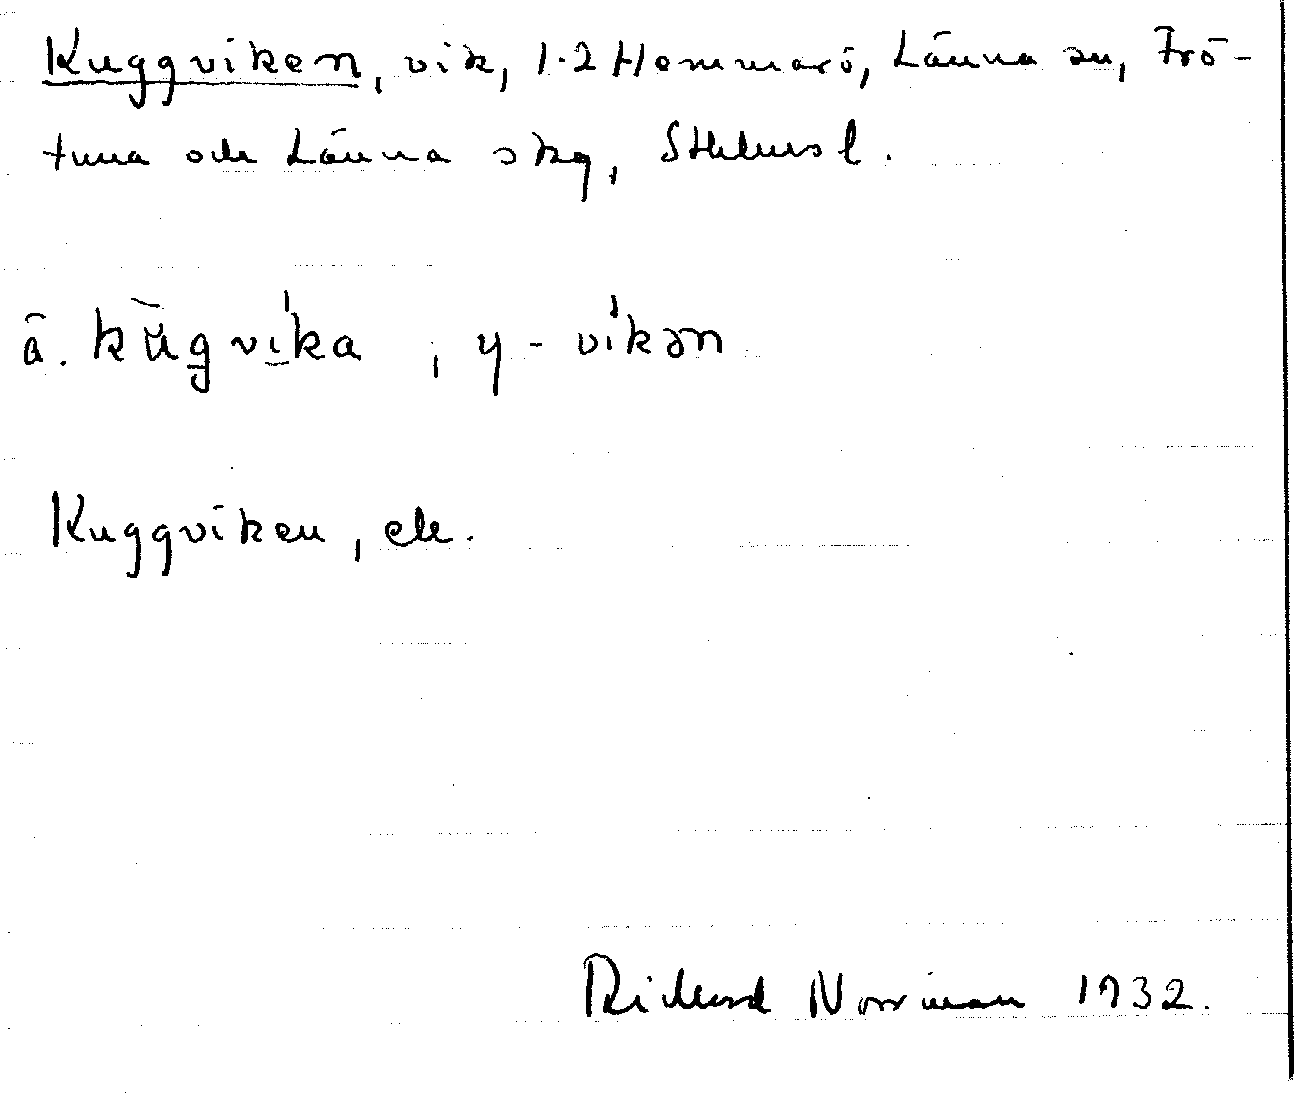 Kuggviken, vik, 1-2 Hemmarö, Länna sn, Frö-
tuna och Länna skg, Sthlms l.
ä. kùg̱vi̱ka, y - vikən
Kuggviken, ek.
Rickard Norrman 1932.